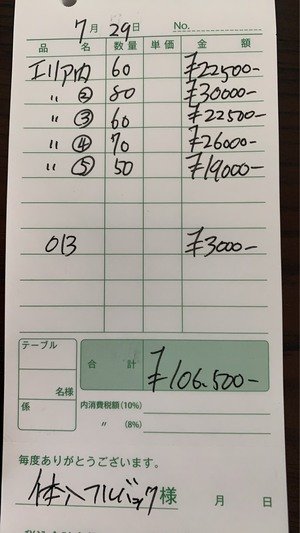 7月 29日 No.
品名 数量 単価 金額
エリア内 60 ¥22500-
〃 ② 80 ¥30000-
〃 ③ 60 ¥22500-
〃 ④ 70 ¥26000-
〃 ⑤ 50 ¥19000-
013 ¥3000-
テーブル
名様
係
合計 ¥106.500-
内消費税額(10%)
〃 (8%)
毎度ありがとうございます。
体入フルバック様 月 日